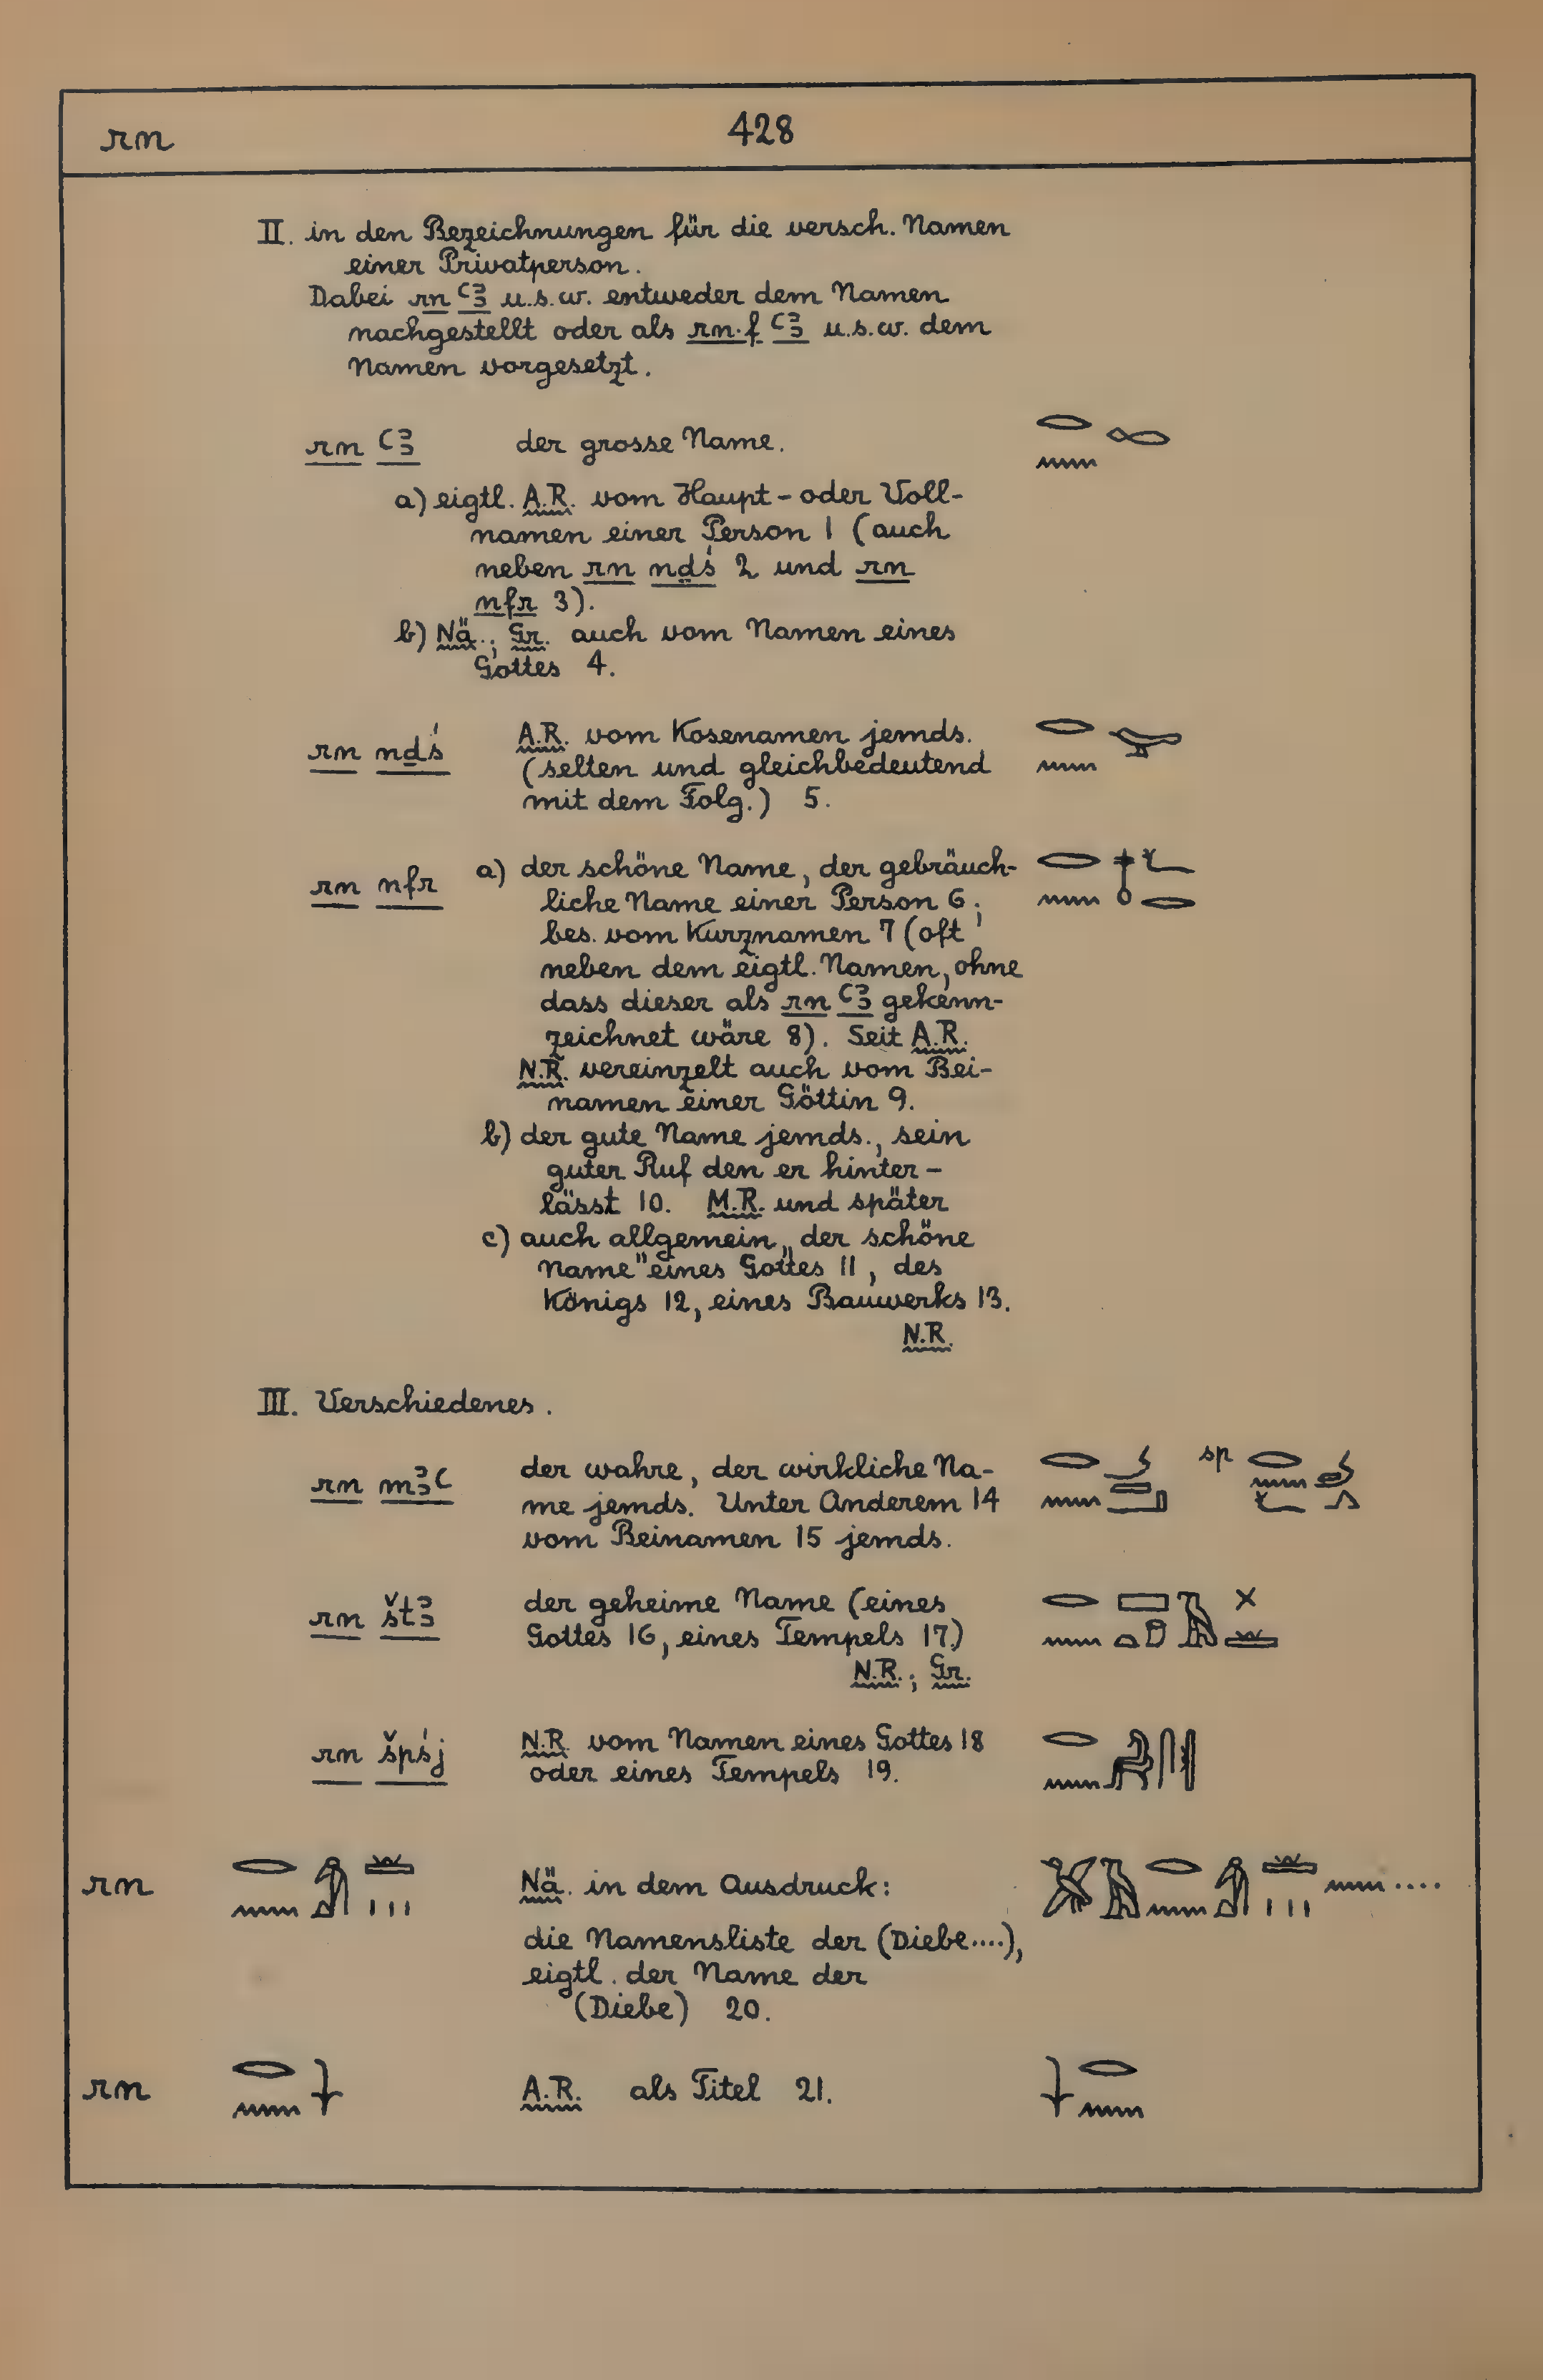 rn
428
II. in den Bezeichnungen für die versch. Namen
einer Privatperson.
Dabei rn ꜥꜣ u.s.w. entweder dem Namen
nachgestellt oder als rn·f ꜥꜣ u.s.w. dem
Namen vorgesetzt.
rn ꜥꜣ der grosse Name. 𓂋𓈖𓉻
a) eigtl. A.R. vom Haupt- oder Voll-
namen einer Person 1 (auch
neben rn nḏś 2 und rn
nfr 3).
b) Nä.; Gr. auch vom Namen eines
Gottes 4.
rn nḏś A.R. vom Kosenamen jemds. 𓂋𓈖𓅪
(selten und gleichbedeutend
mit dem Folg.) 5.
rn nfr a) der schöne Name, der gebräuch- 𓂋𓈖𓄤𓆑𓂋
liche Name einer Person 6;
bes. vom Kurznamen 7 (oft
neben dem eigtl. Namen, ohne
dass dieser als rn ꜥꜣ gekenn-
zeichnet wäre 8). Seit A.R.
N.R. vereinzelt auch vom Bei-
namen einer Göttin 9.
b) der gute Name jemds., sein
guter Ruf den er hinter-
lässt 10. M.R. und später
c) auch allgemein „der schöne
Name" eines Gottes 11, des
Königs 12, eines Bauwerks 13.
N.R.
III. Verschiedenes.
rn mꜣꜥ der wahre, der wirkliche Na-
me jemds. Unter Anderem 14 sp
vom Beinamen 15 jemds.
rn štꜣ der geheime Name (eines
Gottes 16, eines Tempels 17)
N.R.; Gr.
rn špśj N.R. vom Namen eines Gottes 18
oder eines Tempels 19.
rn 𓂋𓈖𓀁𓏛𓏥 Nä. in dem Ausdruck: 𓅮𓄿𓂋𓈖𓀁𓏛𓏥𓈖 ....
die Namensliste der (Diebe....),
eigtl. der Name der
(Diebe) 20.
rn 𓂋𓈖𓇓 A.R. als Titel 21. 𓇓𓂋𓈖